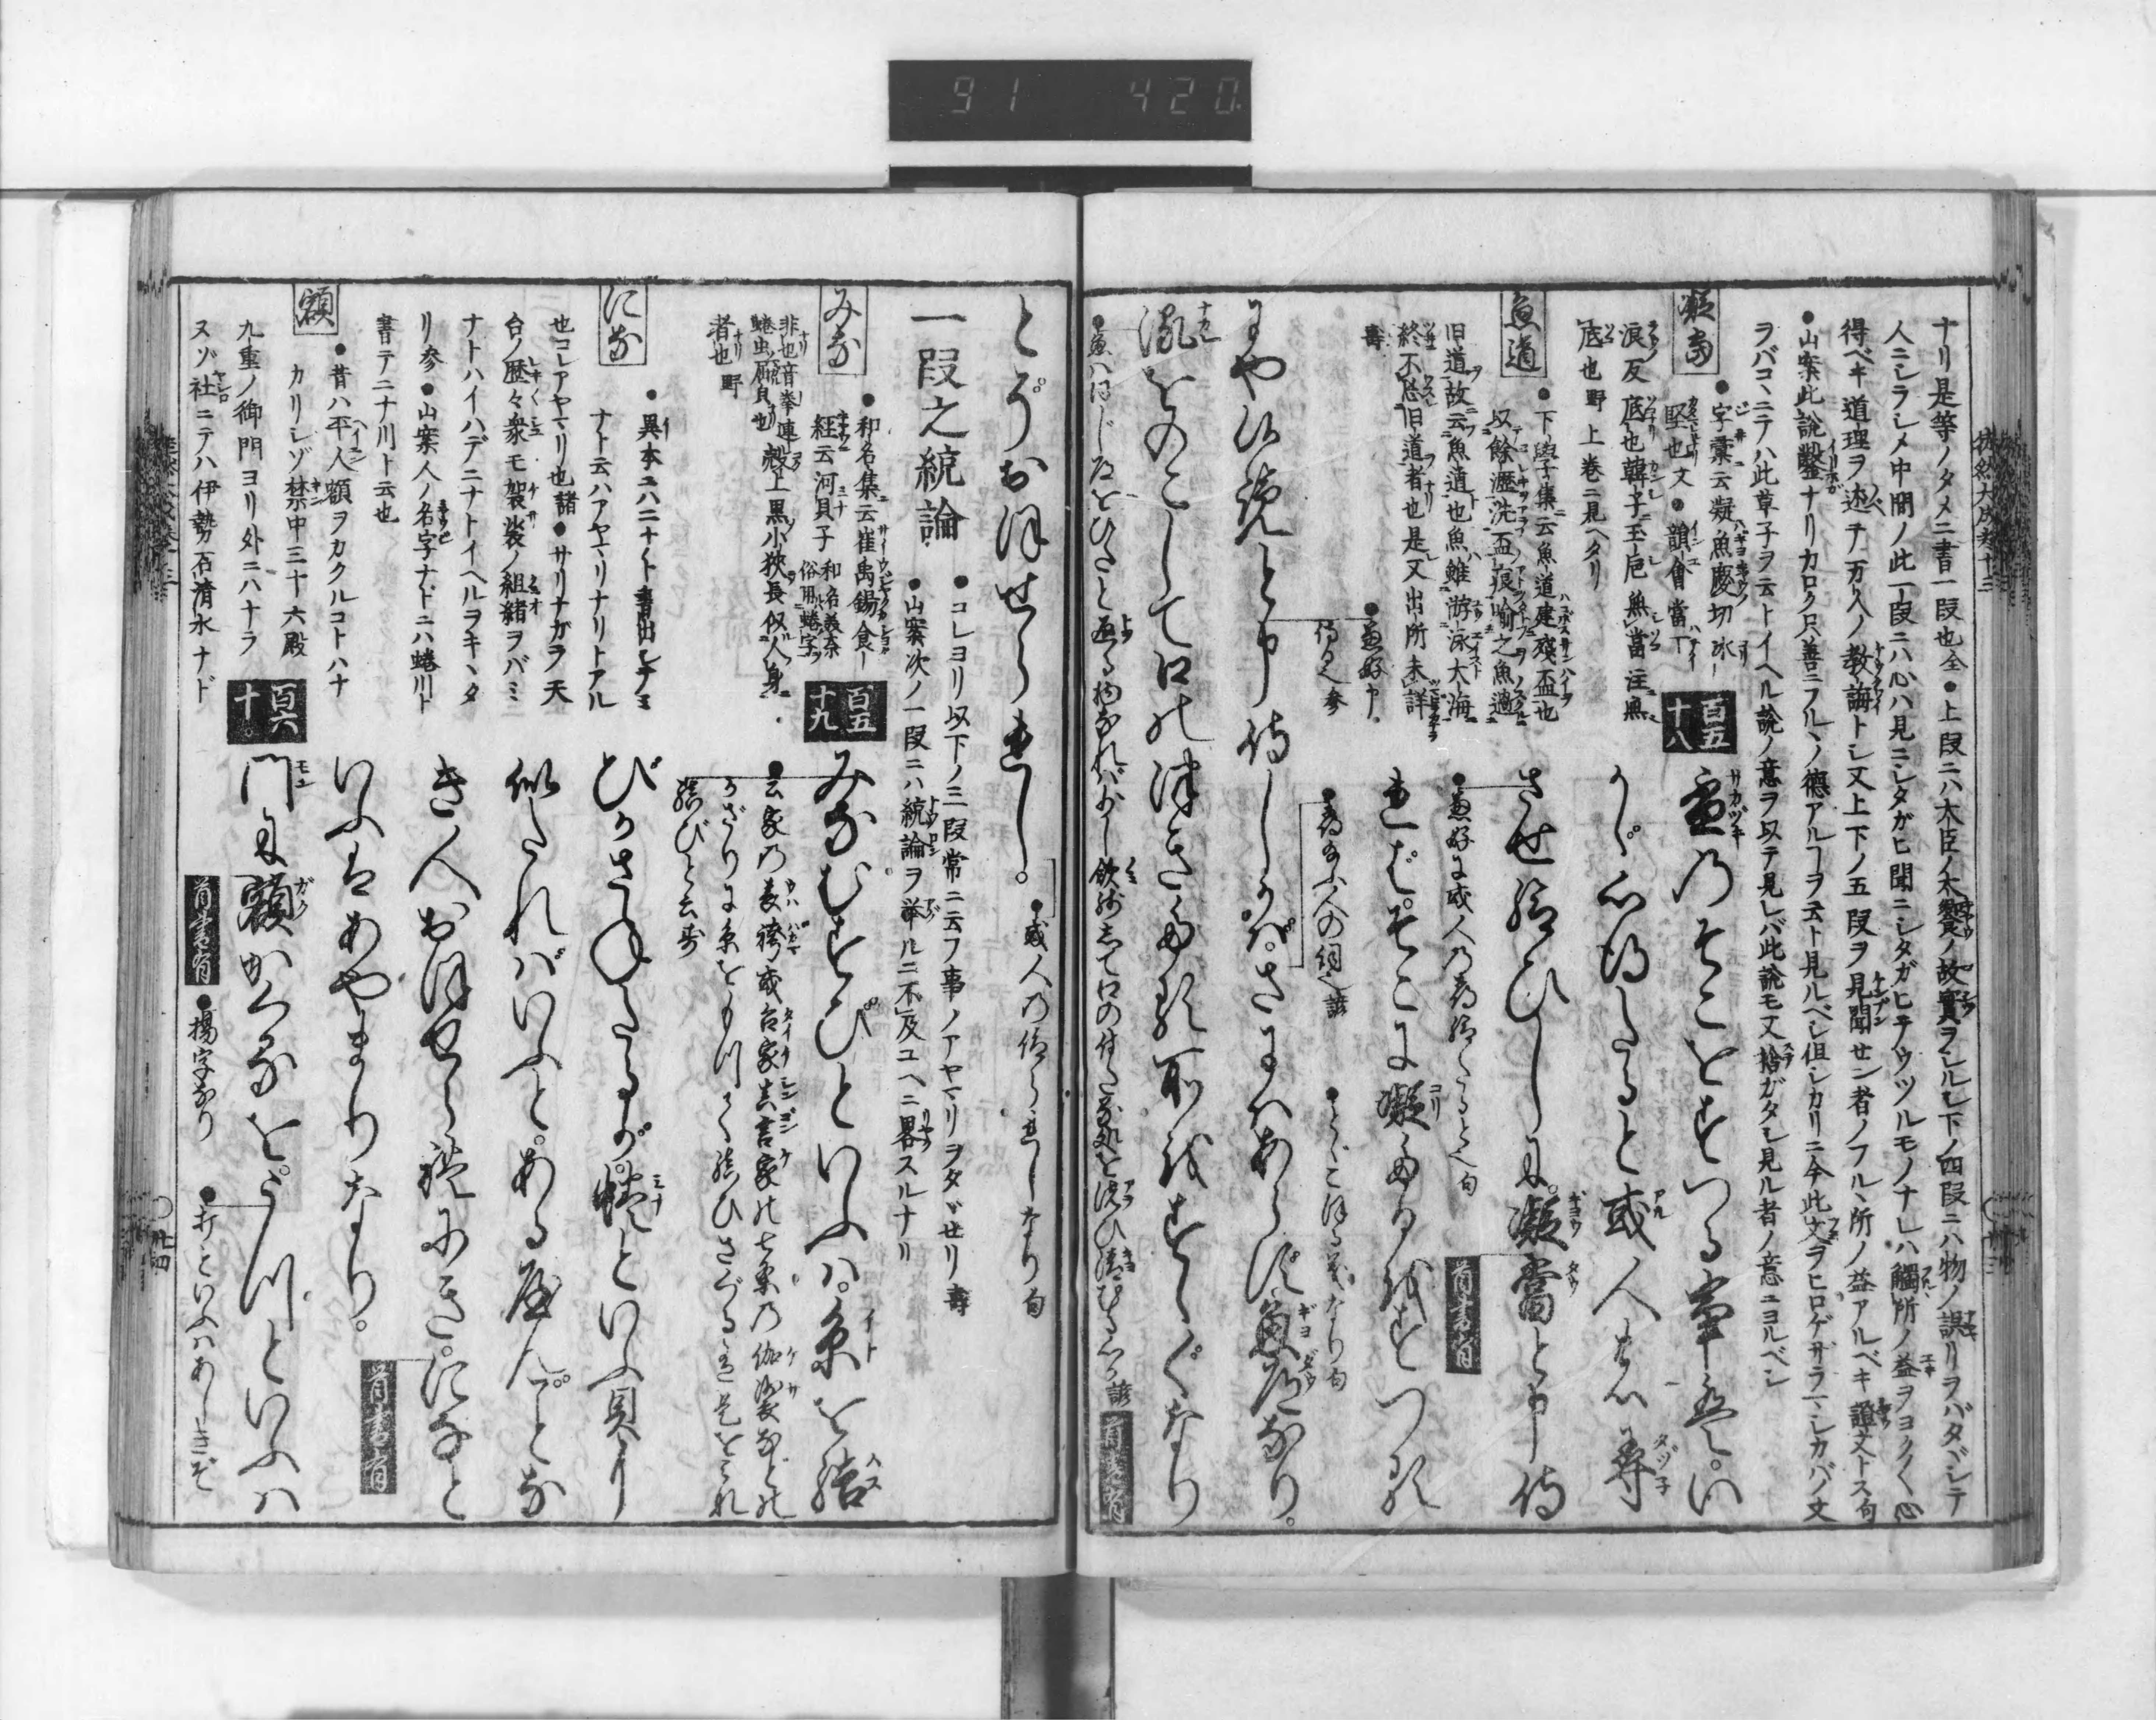 91 420
徒然大成巻十三
ナリ是等ノタメニ書一段也全●上段ニハ大臣ノ大饗ノ故實ヲシルシ下ノ四段ニハ物ノ誤リヲバタヾシテ
人ニシラシメ中間ノ此一段ニハ心ハ見ニシタガヒ聞ニシタガヒテウツルモノナレハ觸所ノ益ヲヨク〱心
得ベキ道理ヲ述テ万人ノ教誨トシ又上下ノ五段ヲ見聞セン者ノフルヽ所ノ益アルベキ證文トス句
●山案此説鑿ナリカロク只善ニフルヽノ德アルヿヲ云ト見ルベシ但シカリニ今此文ヲヒロゲザラマシカバノ文
ヲバコヽニテハ此草子ヲ云トイヘル説ノ意ヲ以テ見レバ此説モ又捨ガタシ見ル者ノ意ニヨルベシ
凝當
●字彙云凝魚慶切氷
堅也文●韻會當丁
浪反底也韓子玉巵無當注無
底也野上巻ニ見ヘタリ
百五十八
盃のそこをすつる事はい
かゞ心得たると或人の尋
させ給ひしに凝當と申侍
首書有
●兼好に或人の尋給たると也句
魚道
●下學集云魚道建殘盃也
以餘瀝洗盃痕喩之魚過
旧道故云魚道也魚雖游泳大海
終不忘旧道者也是又出所未詳
壽
れば。そこに凝たるをすつる
●兼好申
侍る也参
●尋る人の詞也諺
●とゞこほる義なり句
にや候覧と申侍しかば。さにはあらず魚道なり。
流をのこして口の津きたる所をすゝぐなり
●魚ハ同じ道をひたと通る物なれバ少し飲残して口の付たる処を洗ひ清むる心か諺
首書有
とぞおほせられし。
●或人の仰られしなり句
一段之統論
●コレヨリ以下ノ三段常ニ云フ事ノアヤマリヲタヾセリ壽
●山案次ノ一段ニハ統論ヲ挙ルニ不及ユヘニ畧スルナリ
みな
●和名集云崔禹錫食
経云河貝子 和名美奈俗用蜷字
非也音拳連
蜷虫屈皃也 殻上黒小狹長似人身
者也野
百五十九
みなむすびといふハ。糸を結
●公家の表袴或台家真言家の七条の伽裟などの
かざりに糸をもつて結ひさげるを是をみな
結びと云壽
にな
●異本ニハニナト書出シテヨ
ナト云ハアヤマリナリトアル
也コレアヤマリ也諸●サリナガラ天
台ノ歴々衆モ袈裟ノ組緒ヲバミ
ナトハイハデニナトイヘルヲキヽタ
リ参●山案人ノ名字ナドニハ蜷川ト
書テニナ川ト云也
びかさねたるが。蜷といふ貝に
似たればいふと。あるやんごとな
き人おほせられき。になと
いふはあやまりなり。
首書有
額
●昔ハ平人額ヲカクルコトハナ
カリシゾ禁中三十六殿
九重ノ御門ヨリ外ニハナラ
ヌゾ社ニテハ伊勢石清水ナド
百六十
門に額かくるを。うつといふハ
首書有
●揚字なり
●打といふハあしきぞ
〇卅四